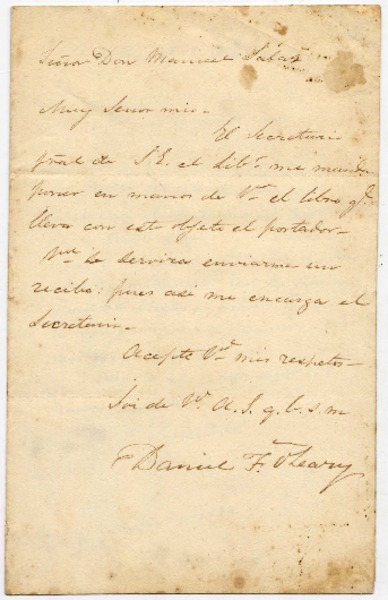 Señor Don Manuel Salas
Muy Señor mio.
El Secretario
gral de S. E. el Libr. me manda
poner en manos de Vm el libro q.
lleva con este objeto el portador.
Vm se servira enviarme un
recibo: pues asi me encarga el
Secretario.
Acepte Vd mis respetos
Soi de Vd. A. S. q. b. s. m
Daniel F. O'Leary